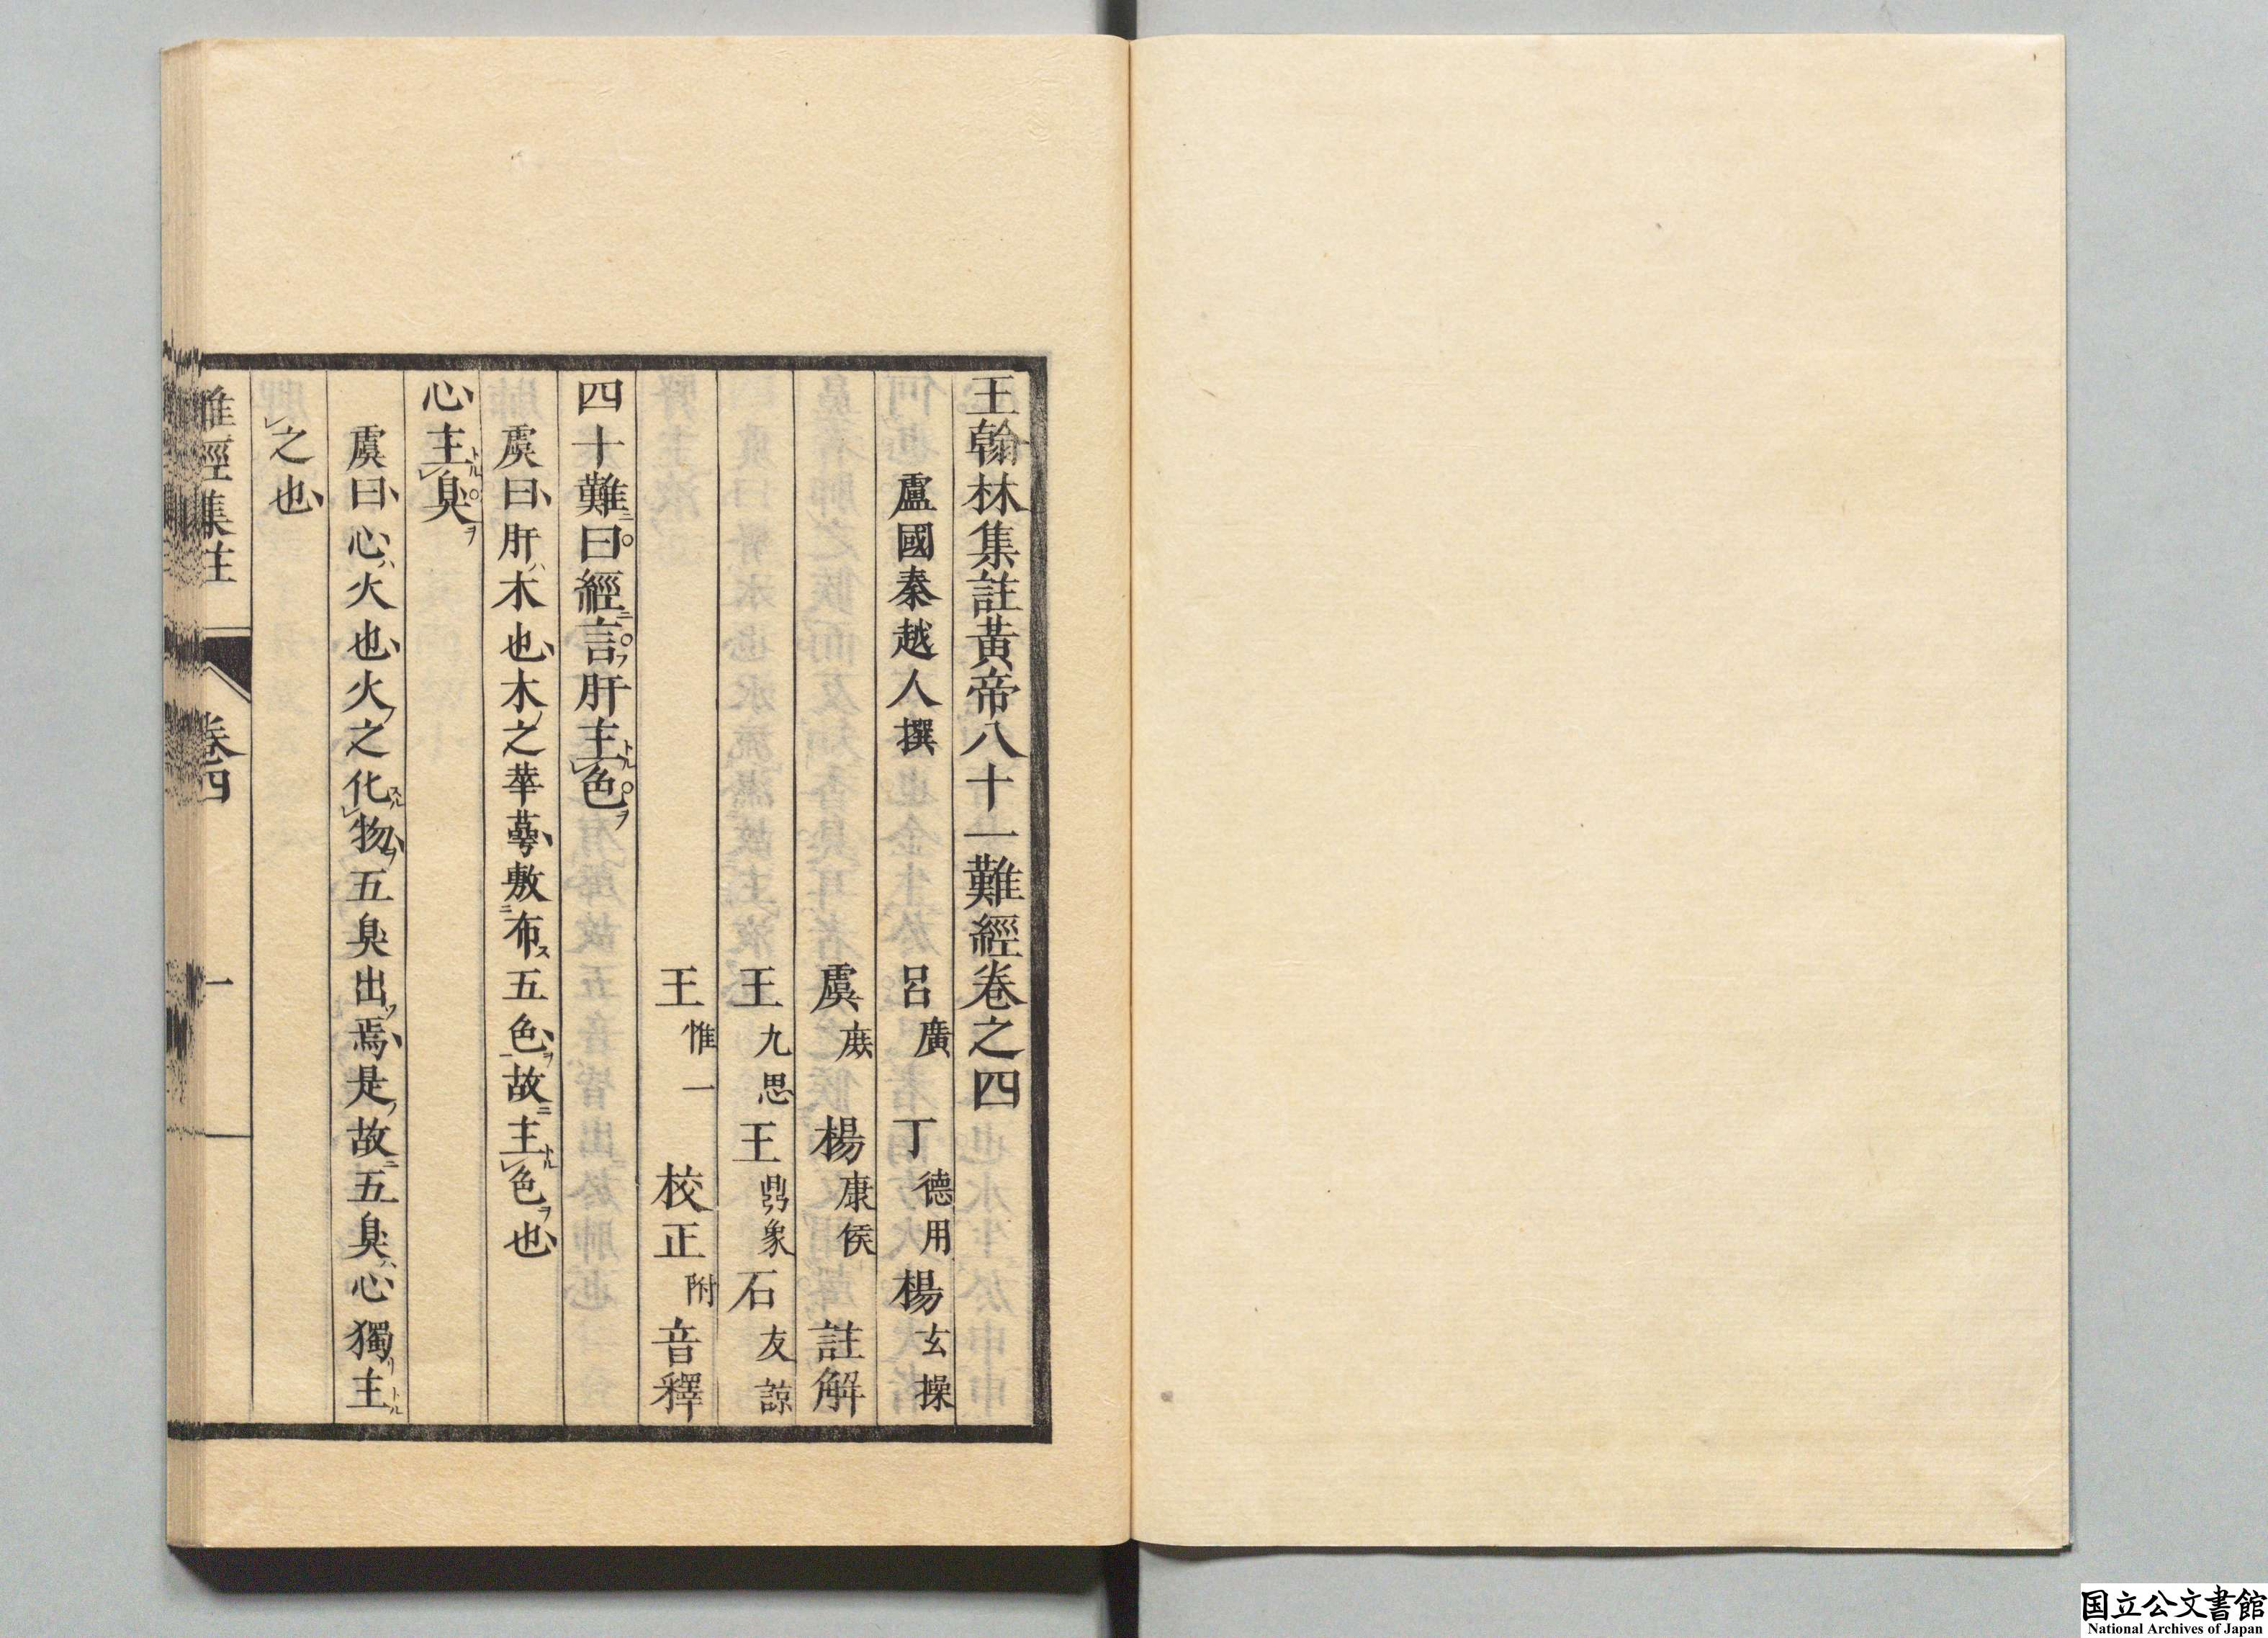 王翰林集註黃帝八十一難經卷之四
盧國秦越人撰 呂廣 丁德用 楊玄操
虞庶 楊康侯 註解
王九思 王鼎象 石友諒
王惟一 校正附音釋
四十難曰經言肝主色
虞曰肝木也木之華萼敷布五色故主色也
心主臭
虞曰心火也火之化物五臭出焉是故五臭心獨主
之也
難經集註 卷四 一
国立公文書館
National Archives of Japan